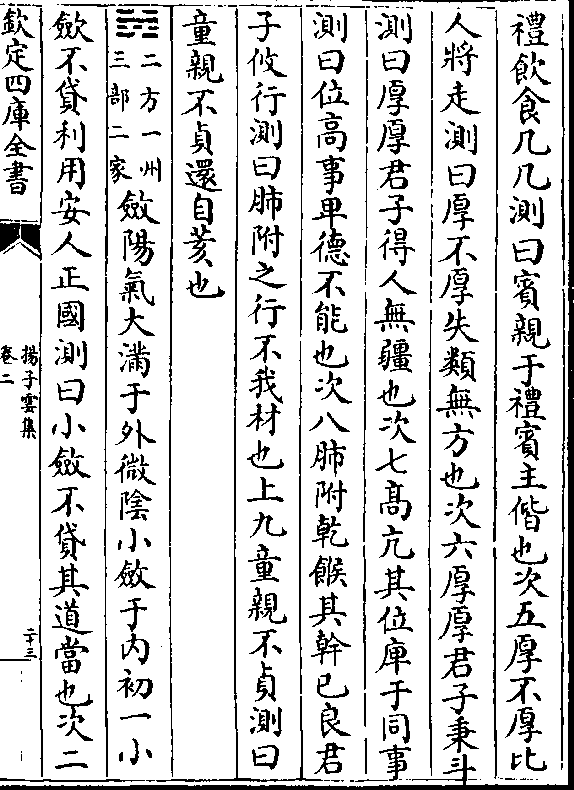 禮飲食几几測曰賓親于禮賓主偕也次五厚不厚比
人將走測曰厚不厚失類無方也次六厚厚君子秉斗
測曰厚厚君子得人無疆也次七高亢其位庳于同事
測曰位高事卑德不能也次八肺附乾餱其幹已良君
子攸行測曰肺附之行不我材也上九童親不貞測曰
童親不貞還自荄也
二方一州
三部二家
斂陽氣大滿于外微陰小斂于内初一小
斂不貸利用安人正國測曰小斂不貸其道當也次二
欽定四庫全書
揚子雲集
卷二
二十三